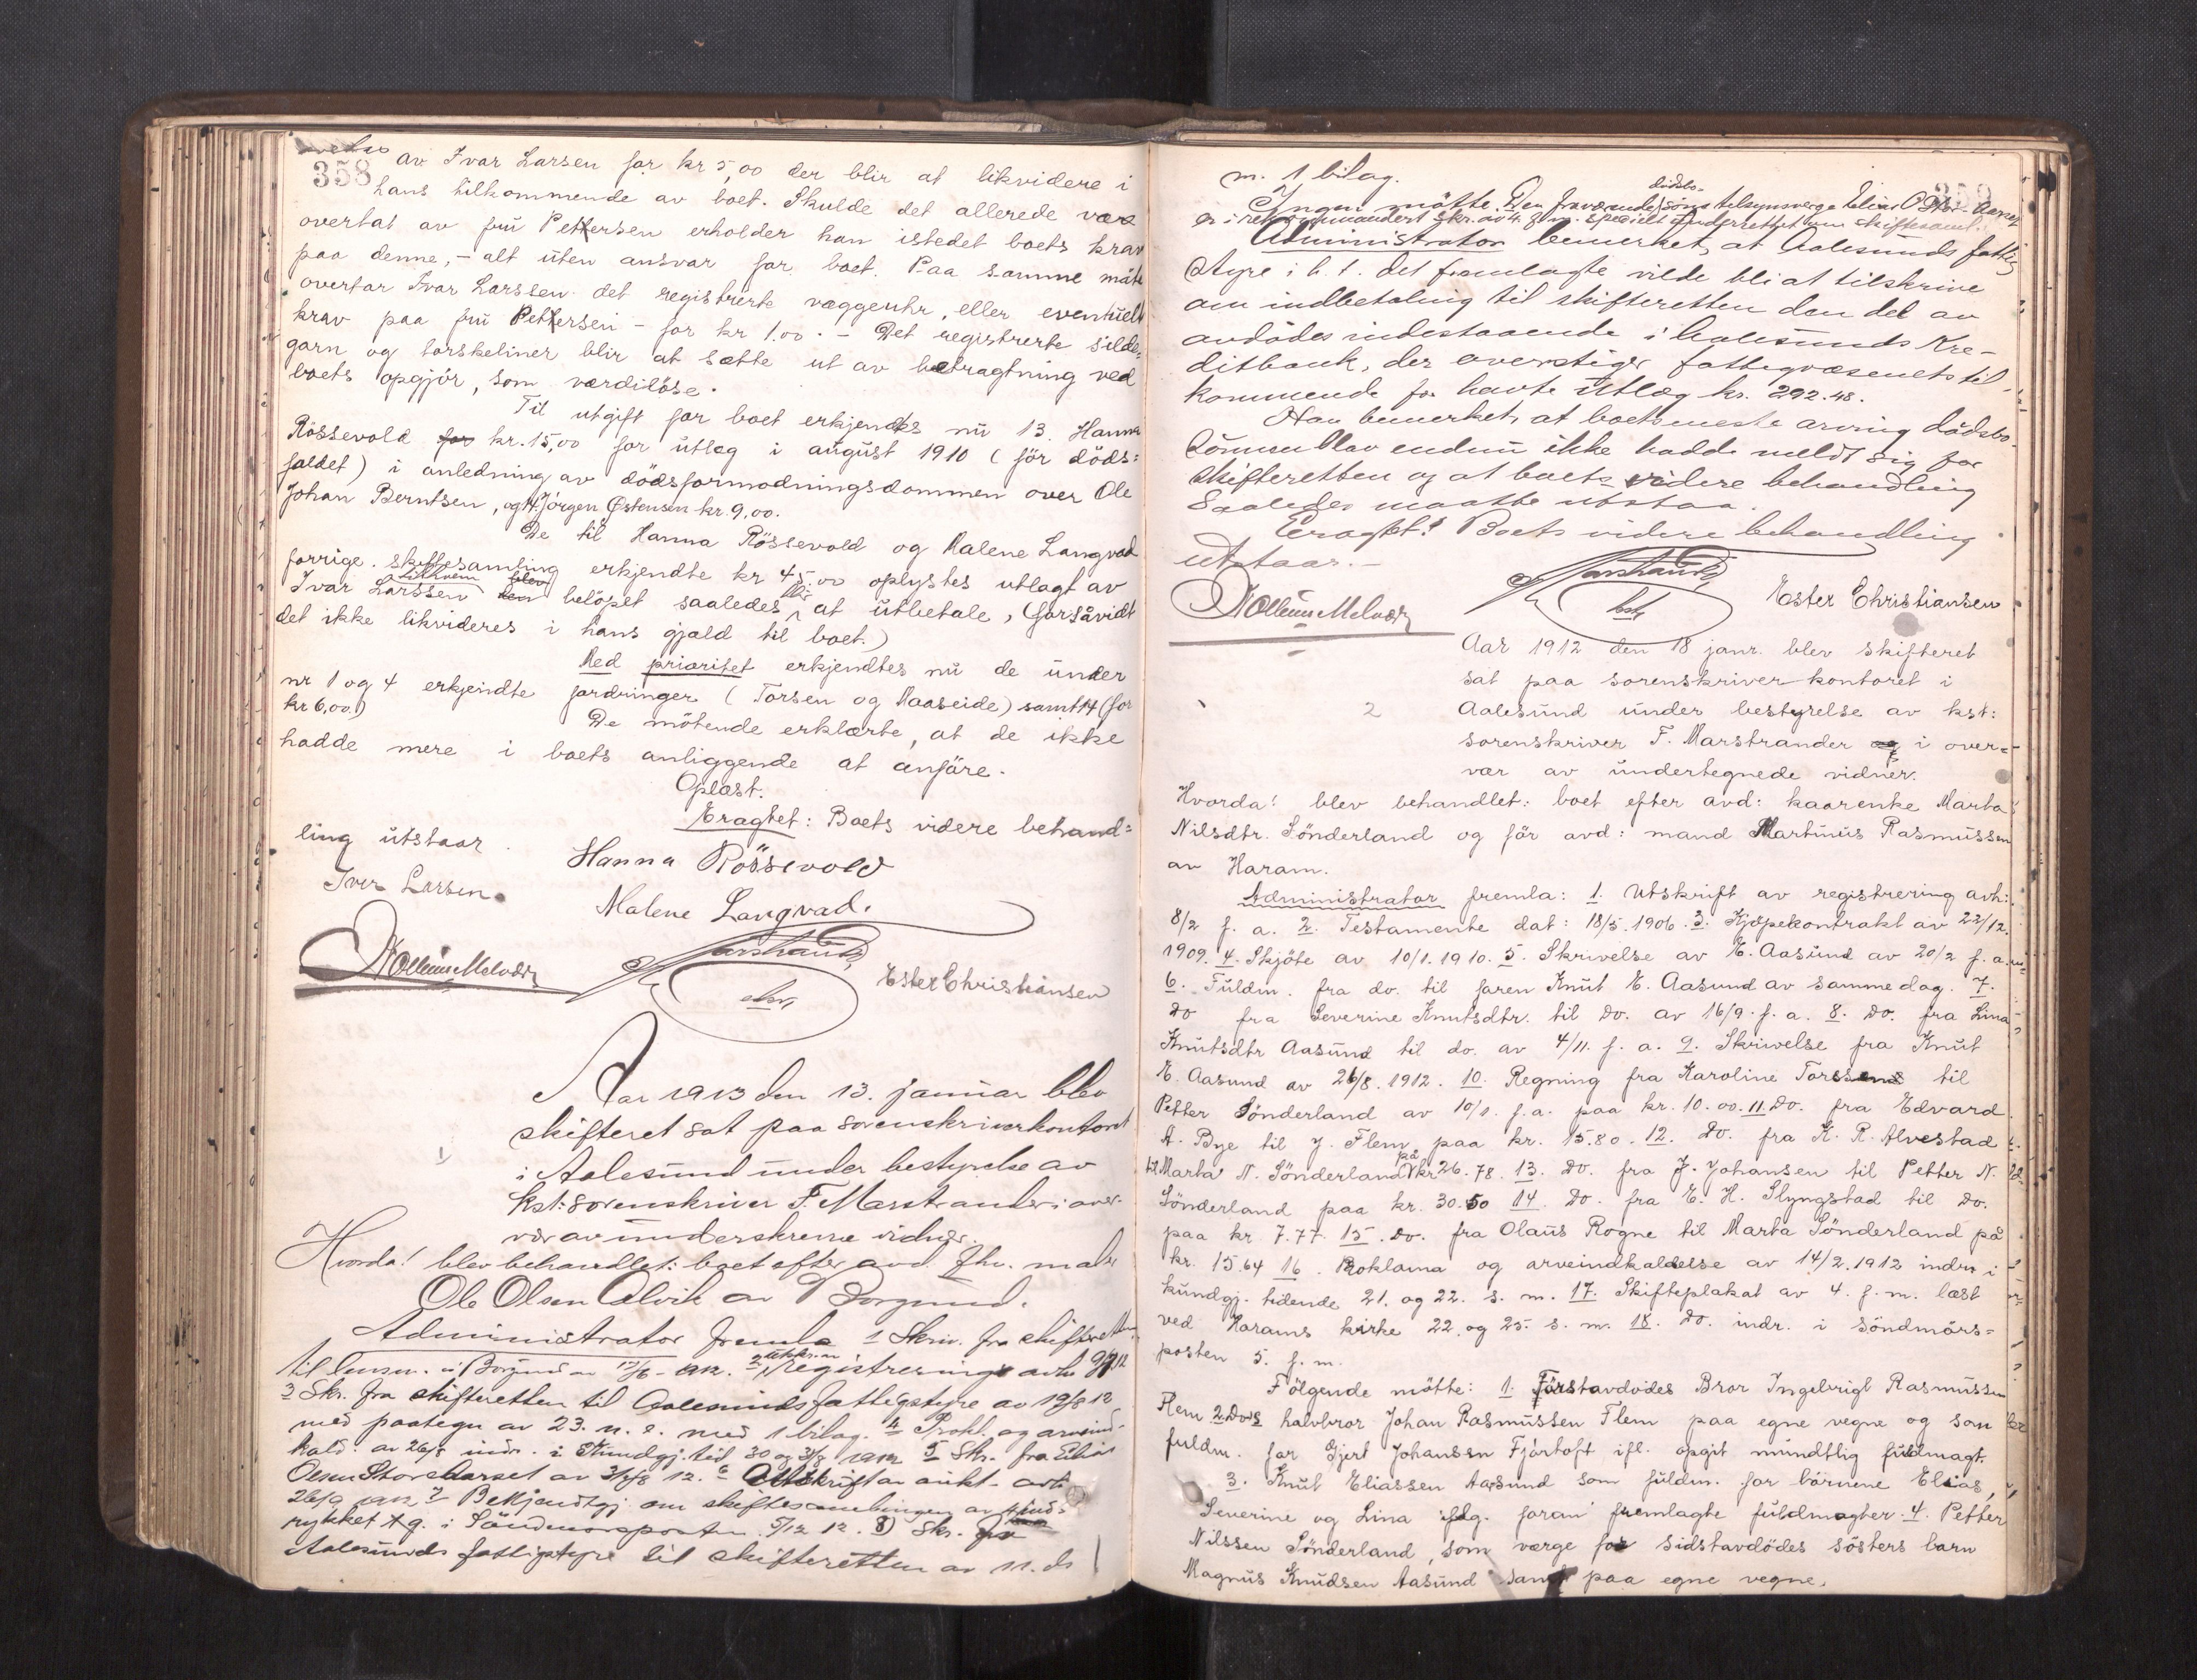 358
av Ivar Larsen for kr 5,00 der blir at likvidere i
hans tilkommende av boet. Skulde det allerede være
overtat av fru Pettersen erholder han istedet boets krav
paa denne, - alt uten ansvar for boet. Paa samme måte
overtar Ivar Larssen det registrerte væggeuhr, eller eventuelt
krav paa fru Pettersen - for kr 1.00. - Det registrerte silde=
garn og torskeliner blir at sætte ut av betragtning ved
boets opgjör, som værdilöse.
Til utgift for boet erkjendtes nu 13. Hanna
Rössevold for kr. 15,00 for utlæg i august 1910 (för döds=
faldet) i anledning av dödsformodningsdommen over Ole
Johan Berntsen, og 14. Jörgen Østensen kr. 9,00.
De til Hanna Rössevold og Malene Langvad
forrige skiftesamling erkjendte kr 45.00 oplystes utlagt av
Ivar Larssen tilkvem blev belöpet saaledes blir at utbetale, (forsåvidt
det ikke likvideres i hans gjæld til boet.)
Med prioritet erkjendtes nu de under
nr 1 og 4 erkjendte fordringer (Torsen og Maaseide) samt 14 (for
kr 6,00.)
De mötende erklærte, at de ikke
hadde mere i boets anliggende at anföre.
Oplæst.
Eragtet: Boets videre behand=
ling utstaar.
Hanna Rössevold
Iver Larsen
Malene Langvad.
Ester Christiansen
Aar 1913 den 13. januar blev
skifteret sat paa sorenskriverkontoret
i Aalesund under bestyrelse av
kst: sorenskriver F. Marstrander i over-
vær av underskrevne vidner.
Hvorda! blev behandlet: boet efter avd. fhv. maler
Ole Olsen Alvik av Borgund.
Administrator fremla 1 Skriv. fra skifteretten
til lensm. i Borgund av 17/6 - 1912. 2 utskr. av registrering avh 9/7 12
3 Skr. fra skifteretten til Aalesunds fattigstyre av 19/8 12
med paategn av 23. n. e. med 1 bilag. 4 Prokl. og arveind-
kald. av 26/8 indr. i Kundgj. tid 30 og 31/8 1912 5 Skr. fra Elias
Olsen Storeaarset av 31/8 12. 6 Utskrift av aukt. avh
26/9 1912 7 Bekjendtgj om skiftesamlingen av ind-
rykket 4 g. i Söndmorsposten 5/12 12. 8) Skr. fra
Aalesunds fattigstyre til skifteretten av 11. ds
m. 1 bilag.
Ingen mötte. Den fraværende dödsbo- söns tilsynsværge Elias O Stor-Aarset
er i rekommandert skr. av 4. f. m. specielt underrettet om skiftesaml.
Administrator bemerket, at Aalesunds fattig
styre i h. t. det fremlagte vilde bli at tilskrive
om indbetaling til skifteretten den del av
avdödes indestaaende i Aalesunds Kre-
ditbank, der overstiger fattigvæsenets til-
kommende for havte utlæg kr. 292.48.
Han bemerket at boets neste arving dödsbo-
sönnen Olav endnu ikke hadde meldt sig for
skifteretten og at boets videre behandling
saaledes maatte utstaa.
Eragtet: Boets videre behandling
utstaar. -
Ester Christiansen
Aar 1912 den 18 janr. blev skifteret
sat paa sorenskriverkontoret i
2
Aalesund under bestyrelse av kst:
sorenskriver F. Marstrander og i over=
vær av undertegnede vidner.
Hvorda! blev behandlet: boet efter avd: kaarenke Marta
Nilsdtr. Sönderland og för avd: mand Martinus Rasmussen
av Haram.
Administrator fremla: 1. Utskrift av registrering avh:
8/2 f. a. 2. Testamente dat: 18/5.1906. 3. Kjöpekontrakt av 22/12.
1909. 4. Skjöte av 10/1.1910. 5. Skrivelse av E. Aasund av 20/2 f. a.
6. Fuldm. fra do. til faren Knut E. Aasund av samme dag. 7.
Do fra Severine Knutsdtr. til Do. av 16/9. f. a. 8. Do. fra Lina
Knutsdtr Aasund til do. av 4/11. f. a. 9. Skrivelse fra Knut
E. Aasund av 26/8.1912. 10. Regning fra Karoline Torssens til
Petter Sönderland av 10/1. f. a. paa kr. 10.00. 11. Do. fra Edvard
A. Bye til J. Flem paa kr. 15.80. 12. Do. fra K. R. Alvestad
til Marta N. Sönderland på kr 26.78. 13. Do. fra J. Johansen til Petter N.
Sönderland paa kr. 30.50 14. Do. fra E. H. Slyngstad til Do.
paa kr. 7.77. 15. Do. fra Olaus Rogne til Marta Sönderland på
kr. 15.64 16. Proklama og arveindkaldelse av 14/2.1912 indr. i
kundgj. tidende 21. og 22. s. m. 17. Skifteplakat av 4. f. m. læst
ved Harams kirke 22. og 25. s. m. 18. Do. indr. i Söndmörs=
posten 5. f. m.
Fölgende mötte: 1. Förstavdödes Bror Ingebrigt Rasmussen
Flem 2. Do's halvbror Johan Rasmussen Flem paa egne vegne og som
fuldm. for Gjert Johanssn Fjörtoft ifl. opgit mundtlig fuldmagt.
3. Knut Eliassen Aasund som fuldm. for börnene Elias,
Severine og Lina ifölg. foran fremlagte fuldmagter. 4. Petter
Nilssen Sönderland, som værge for sidstavdödes sösters barn
Magnus Knudsen Aasund samt paa egne vegne.